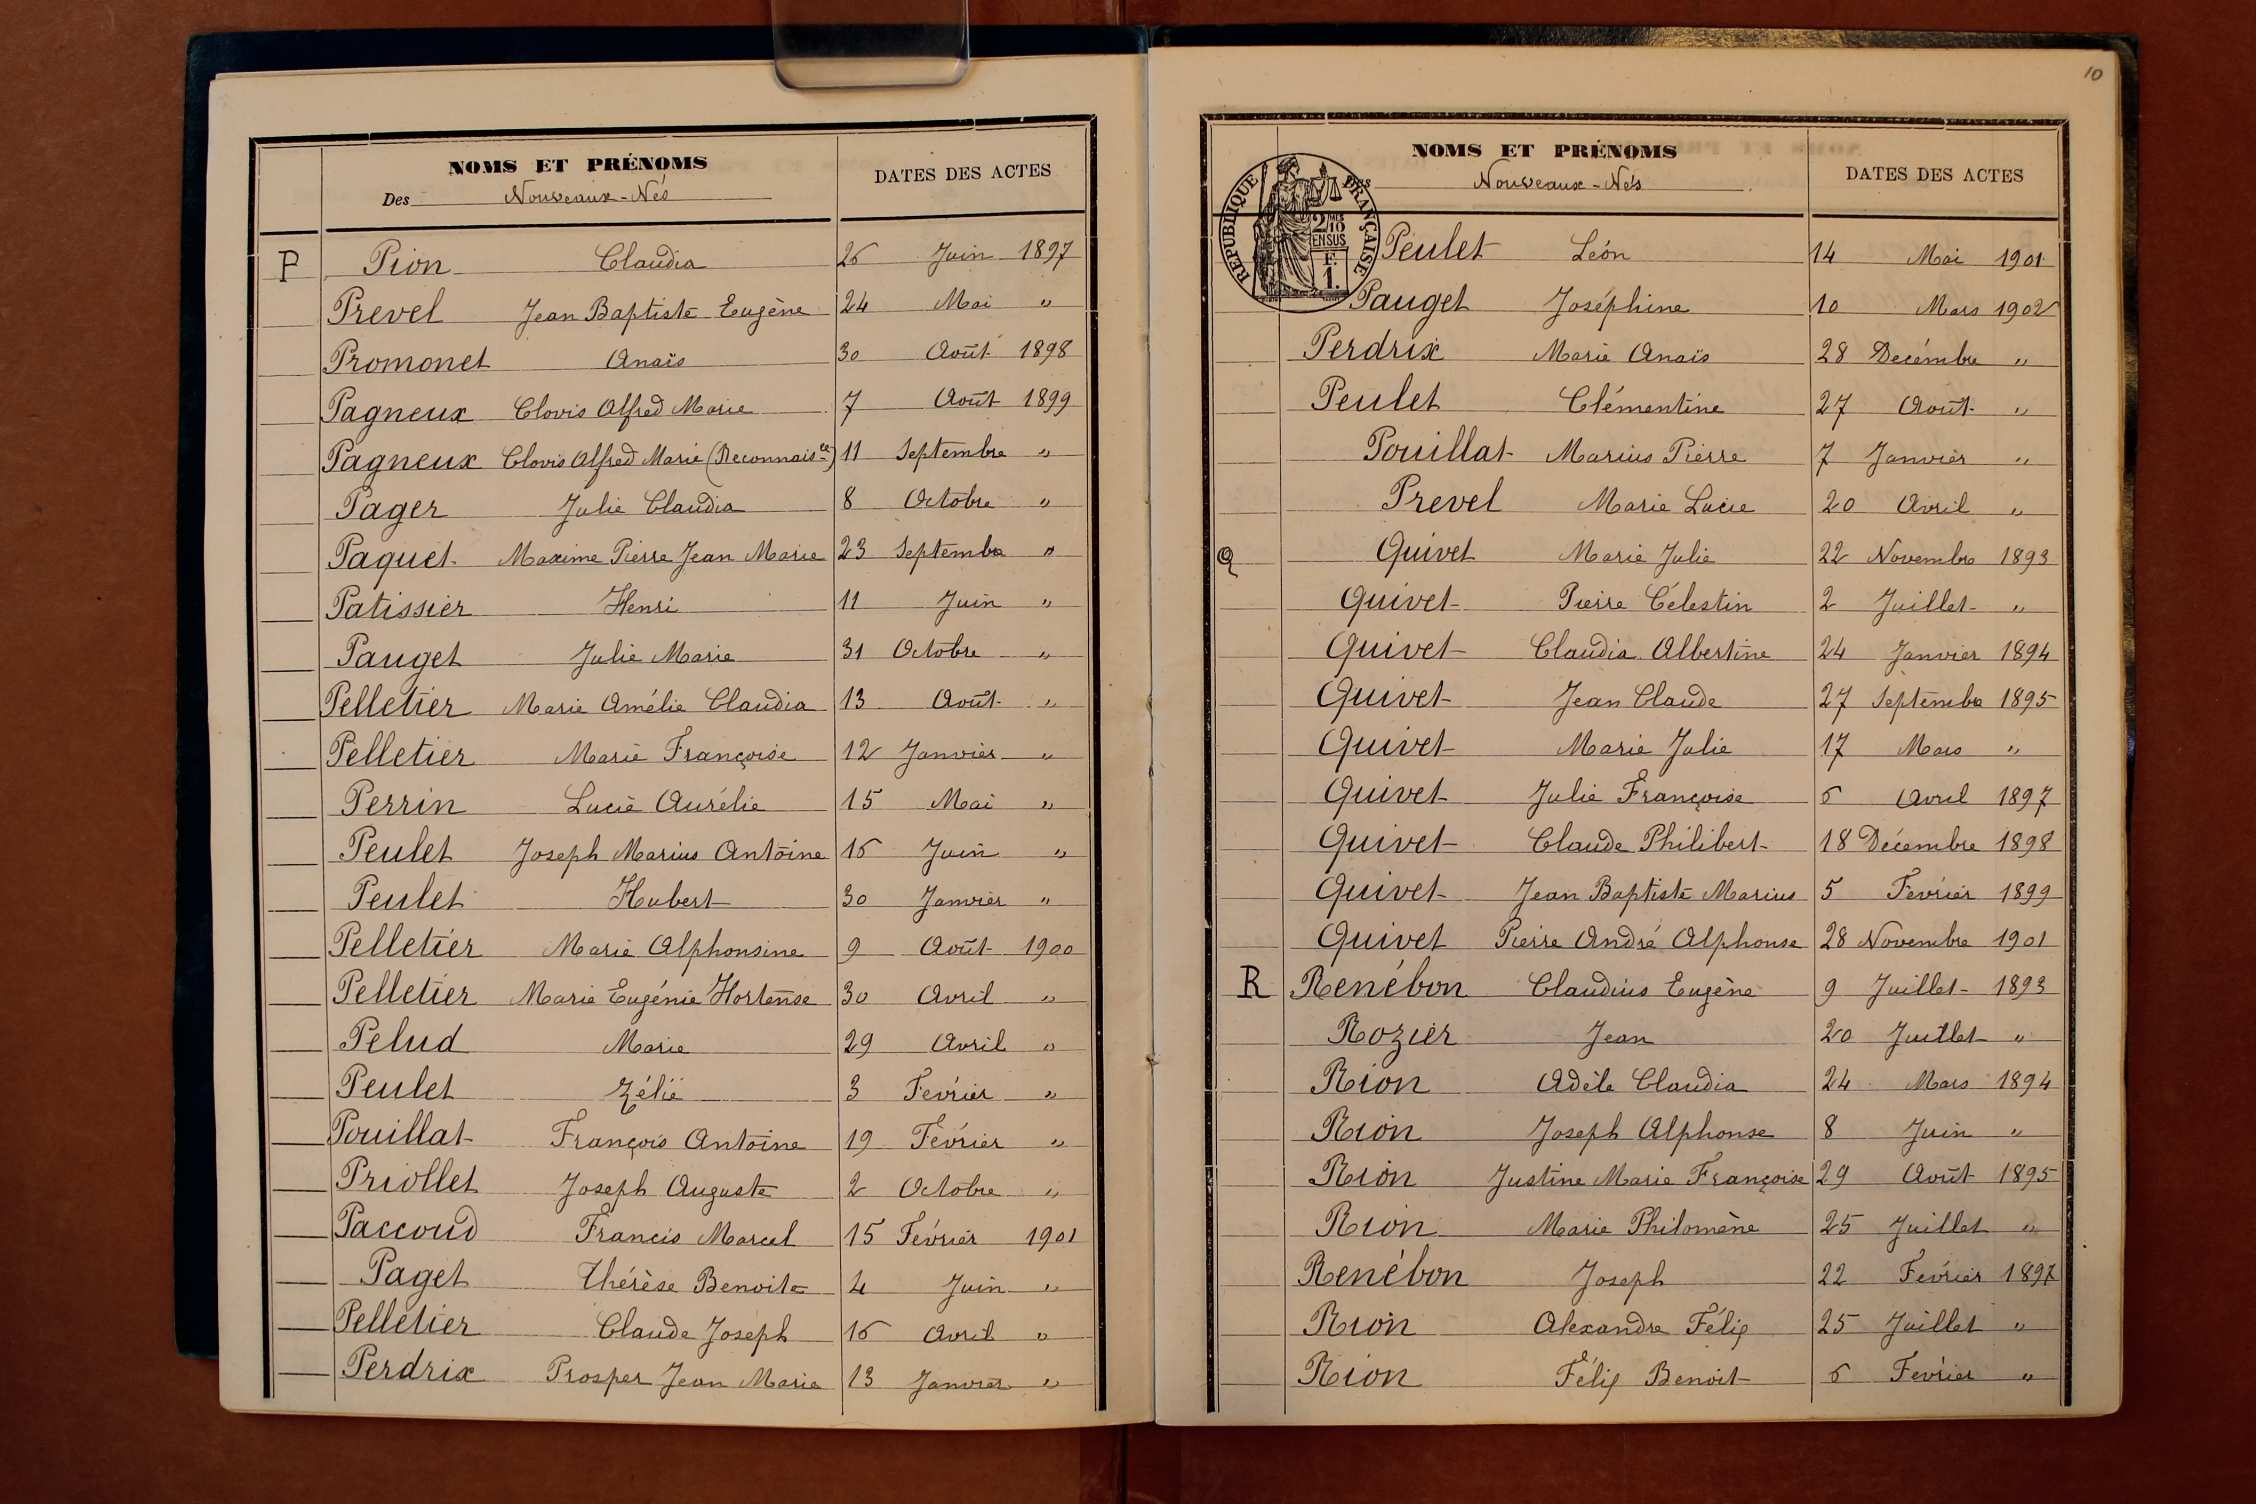 NOMS ET PRÉNOMS
Des Nouveaux-Nés
DATES DES ACTES
P Pion Claudia 26 Juin 1897
Prevel Jean Baptiste Eugène 24 Mai "
Promonet Anaïs 30 Août 1898
Pagneux Clovis Alfred Marie 7 Août 1899
Pagneux Clovis Alfred Marie (Reconnais ce) 11 Septembre "
Pager Julie Claudia 8 Octobre "
Paquet Maxime Pierre Jean Marie 23 Septembre "
Patissier Henri 11 Juin "
Pauget Julie Marie 31 Octobre "
Pelletier Marie Amélie Claudia 13 Août "
Pelletier Marie Françoise 12 Janvier "
Perrin Lucie Aurélie 15 Mai "
Peulet Joseph Marius Antoine 16 Juin "
Peulet Hubert 30 Janvier "
Pelletier Marie Alphonsine 9 Août 1900
Pelletier Marie Eugénie Hortense 30 Avril "
Pelud Marie 29 Avril "
Peulet Zélie 3 Février "
Pouillat François Antoine 19 Février "
Priollet Joseph Auguste 2 Octobre "
Paccoud Francis Marcel 15 Février 1901
Paget Thérèse Benoite 4 Juin "
Pelletier Claude Joseph 16 Avril "
Perdrix Prosper Jean Marie 13 Janvier "
10
NOMS ET PRÉNOMS
Nouveaux-Nés
DATES DES ACTES
RÉPUBLIQUE FRANÇAISE
2/10 MES
EN SUS
F.
1.
Peulet Léon 14 Mai 1901
Pauget Joséphine 10 Mars 1902
Perdrix Marie Anaïs 28 Decémbre "
Peulet Clémentine 27 Août "
Pouillat Marius Pierre 7 Janvier "
Prevel Marie Lucie 20 Avril "
Q Quivet Marie Julie 22 Novembre 1893
Quivet Pierre Célestin 2 Juillet "
Quivet Claudia Albertine 24 Janvier 1894
Quivet Jean Claude 27 Septembre 1895
Quivet Marie Julie 17 Mars "
Quivet Julie Françoise 6 Avril 1897
Quivet Claude Philibert 18 Décembre 1898
Quivet Jean Baptiste Marius 5 Février 1899
Quivet Pierre André Alphonse 28 Novembre 1901
R Renébon Claudius Eugène 9 Juillet 1893
Rozier Jean 20 Juillet "
Rion Adèle Claudia 24 Mars 1894
Rion Joseph Alphonse 8 Juin "
Rion Justine Marie Françoise 29 Août 1895
Rion Marie Philomène 25 Juillet "
Renébon Joseph 22 Février 1897
Rion Alexandre Félix 25 Juillet "
Rion Félix Benoit 6 Février "